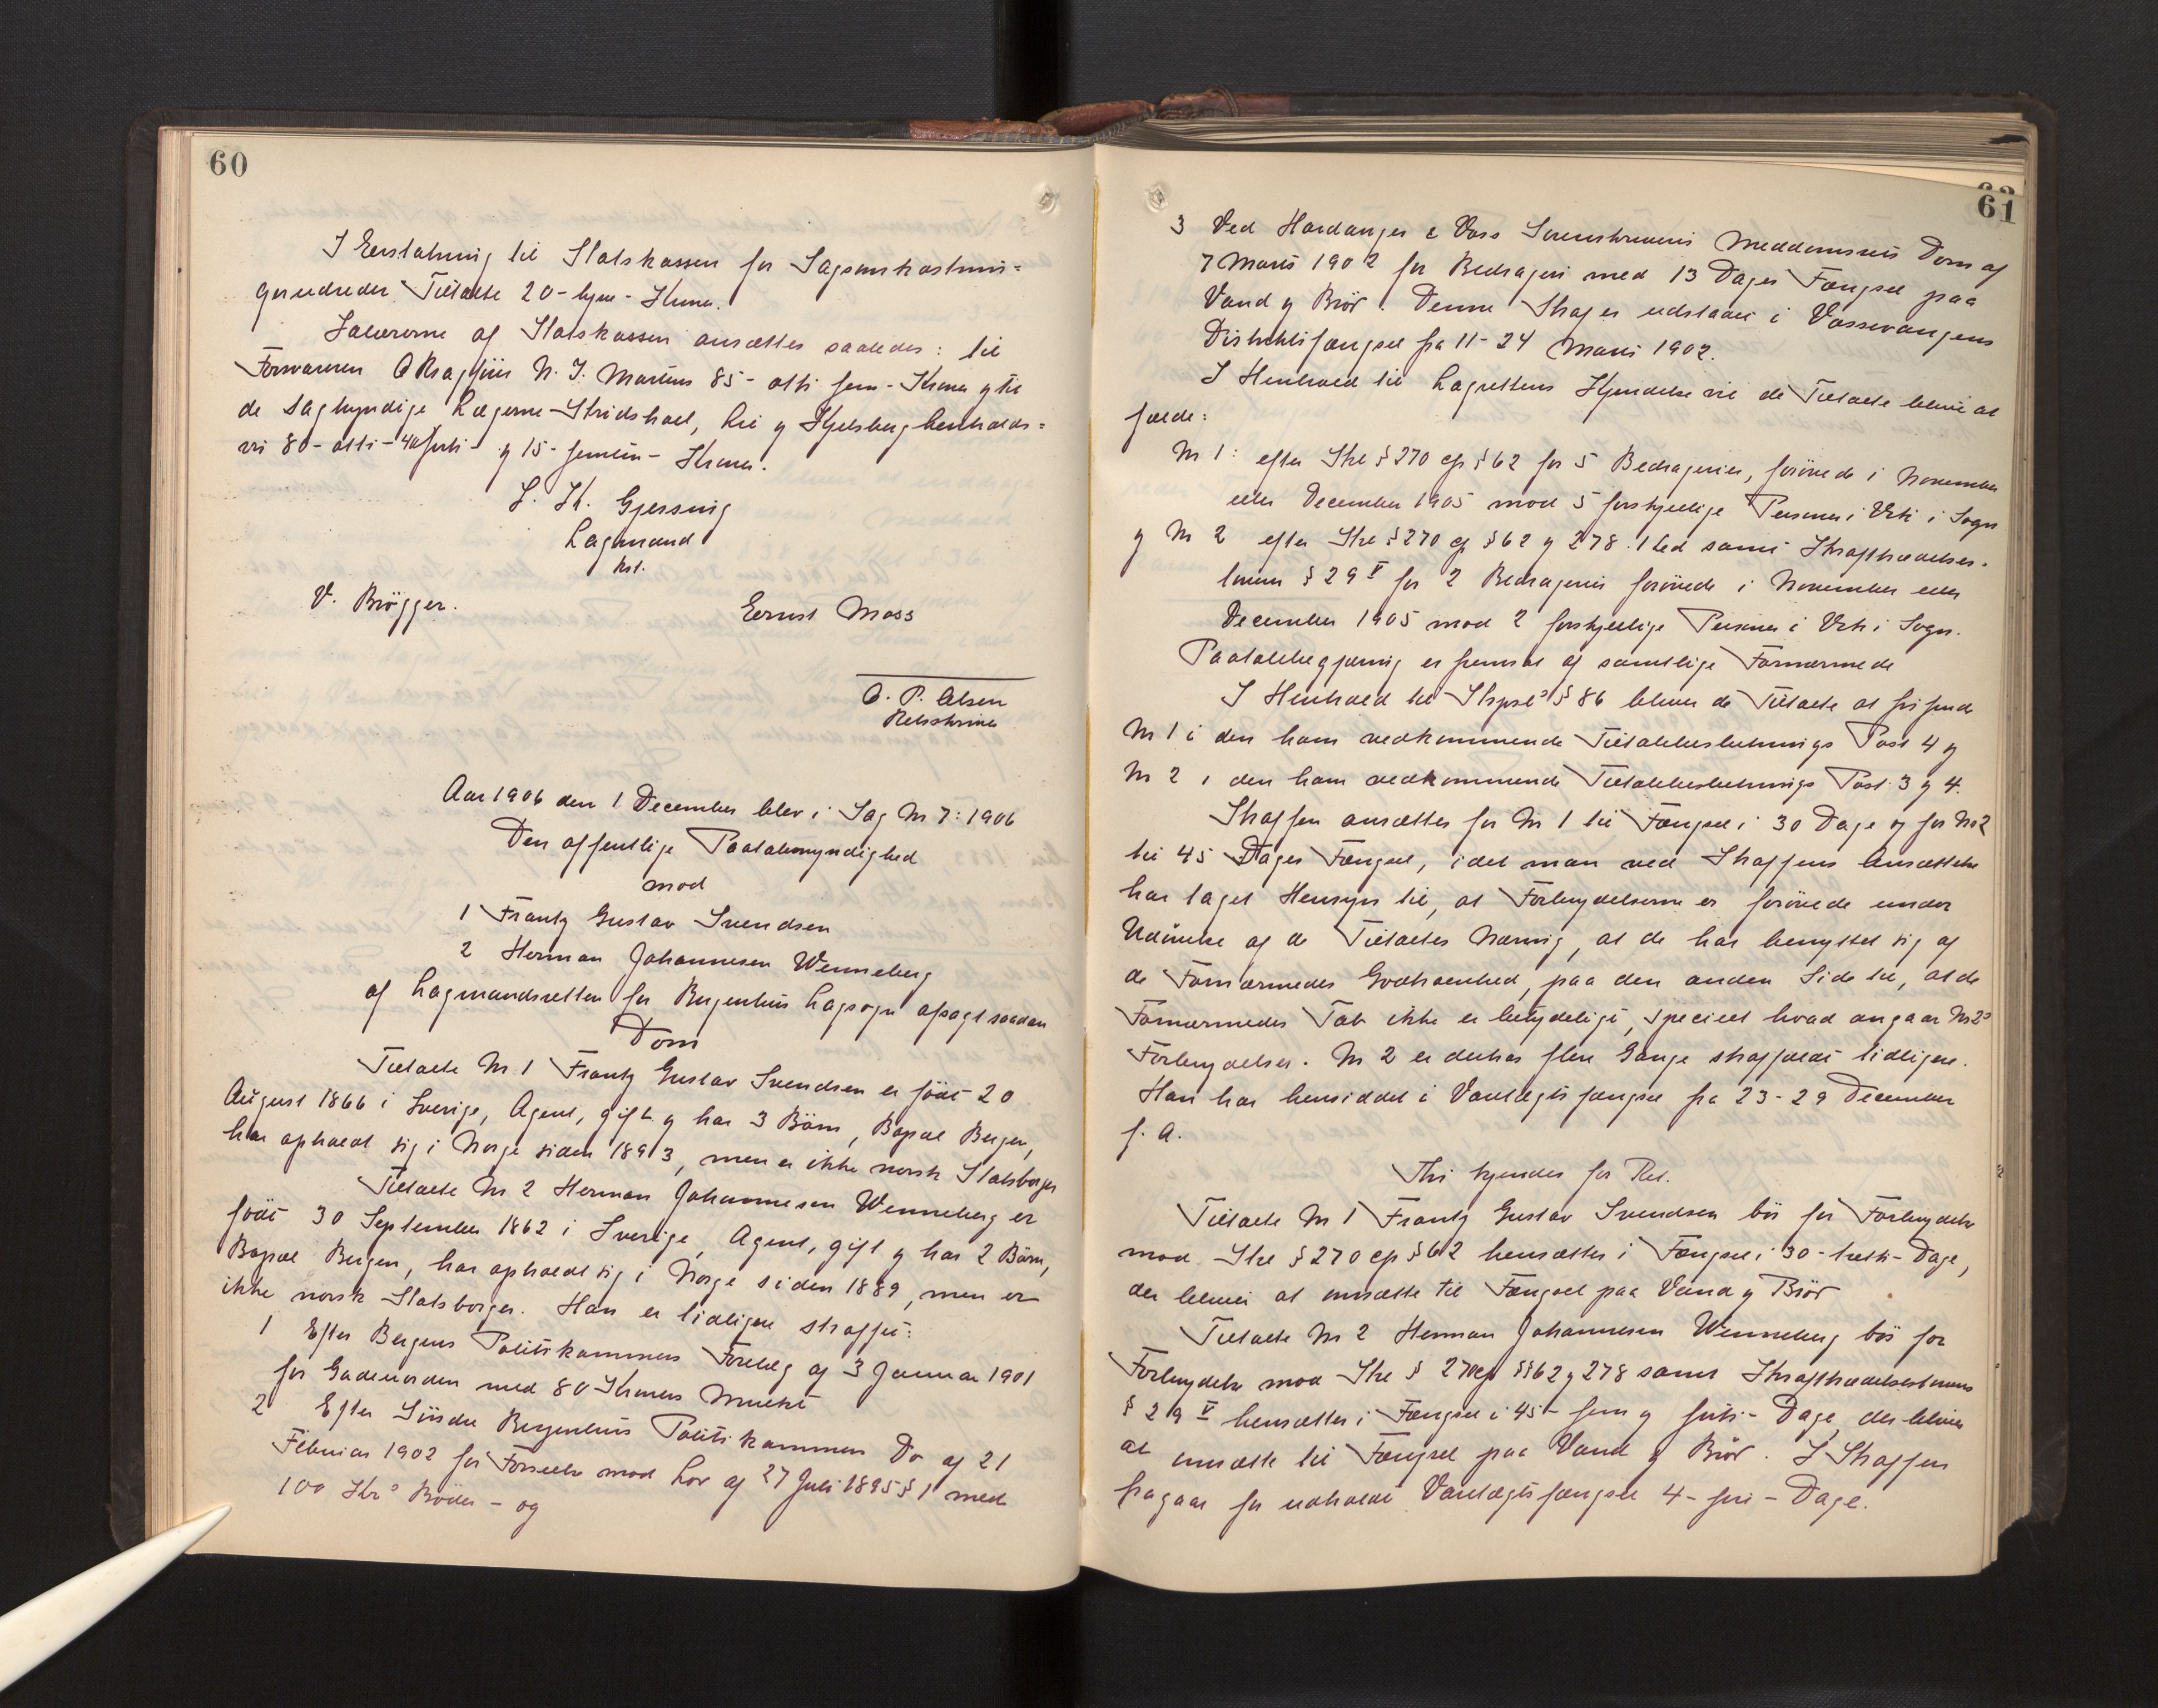 60
I Erstatning til Statskassen for Sagsomkostnin=
ger udreder Tiltalte 20 - tyve - Kroner.
Salærerne af Statskassen ansættes saaledes: til
Forsvareren O Rsagfører N. J. Martens 85 - otti fem - Kroner og til
de sagkyndige Lægerne Stridshoel, Lie og Kjelsberg henholds=
vis 80 - otti - 40 forti - og 15 - femten - Kroner.
L. K. Gjersing
Lagmand
kst.
V. Brøgger.
Ernst Moss
O. P. Olsen
Retsskriver
Aar 1906 den 1 December blev i Sag No 7: 1906
Den offentlige Paatalemyndighed
mod
1 Frantz Gustav Svendsen
2 Herman Johannesen Wenneberg
af Lagmandsretten for Bergenhus Lagsogn afsagt saadan
Dom
Tiltalte No 1 Frantz Gustav Svendsen er født 20
August 1866 i Sverige, Agent, gift og har 3 Børn, Bopæl Bergen,
har opholdt sig i Norge siden 1893, men er ikke norsk Statsborger
Tiltalte No 2 Herman Johannesen Wenneberg er
født 30 September 1862 i Sverige, Agent, gift og har 2 Børn,
Bopæl Bergen, har opholdt sig i Norge siden 1889, men er
ikke norsk Statsborger. Han er tidligere straffet:
1 Efter Bergens Politikammers Forelæg af 3 Januar 1901
for Gadeuorden med 80 Kroners Mulkt
2 Efter Søndre Bergenhus Politikammers Do af 21
Februar 1902 for Forseelse mod Lov af 27 Juli 1895 § 1 med
100 Krs Bøder - og
61
3 Ved Hardanger & Voss Sorenskriveris Meddomsrets Dom af
7 Marts 1902 for Bedrageri med 13 Dages Fængsel paa
Vand og Brød. Denne Straf er udstaaet i Vossevangens
Distriktsfængsel fra 11 - 24 Marts 1902.
I Henhold til Lagrettens Kjendelse vil de Tiltalte blive at
fælde:
No 1: efter Strl § 270 cfr § 62 for 5 Bedragerier, forøvede i November
eller December 1905 mod 5 forskjellige Personer i Vik i Sogn
og No 2 efter Strl § 270 cfr § 62 og 278. 1 Led samt Ikrafttrædelses-
lovens § 29 V for 2 Bedragerier forøvede i November eller
December 1905 mod 2 forskjellige Personer i Vik i Sogn.
Paatalebegjæring er fremsat af samtlige Fornærmede
I Henhold til Strprls § 86 bliver de Tiltalte at frifinde
No 1 i den ham vedkommende Tiltalebeslutnings Post 4 og
No 2 i den ham vedkommende Tiltalebeslutnings Post 3 og 4.
Straffen ansættes for No 1 til Fængsel i 30 Dage og for No 2
til 45 Dages Fængsel, idet man ved Straffens Ansættelse
har taget Hensyn til, at Forbrydelserne er forøvede under
Udøvelse af de Tiltaltes Næring, at de har benyttet sig af
de Fornærmedes Godtroenhed, paa den anden Side til, at de
Fornærmedes Tab ikke er betydeligt, specielt hvad angaar No 2s
Forbrydelser. No 2 er derhos flere Gange straffældt tidligere.
Han har hensiddet i Varetægtsfængsel fra 23 - 29 December
f. A.
Thi kjendes for Ret.
Tiltalte No 1 Frantz Gustav Svendsen bør for Forbrydelse
mod Strl § 270 cfr § 62 hensættes i Fængsel i 30 - tretti - Dage,
der bliver at omsætte til Fængsel paa Vand og Brød
Tiltalte No 2 Herman Johannesen Wenneberg bør for
Forbrydelse mod Strl § 270 cfr §§ 62 og 278 samt Ikrafttrædelseslovens
§ 29 V hensættes i Fængsel i 45 - fem og forti - Dage, der bliver
at omsætte til Fængsel paa Vand og Brød. I Straffen
fragaar for udholdt Varetægtsfængsel 4 - fire - Dage.